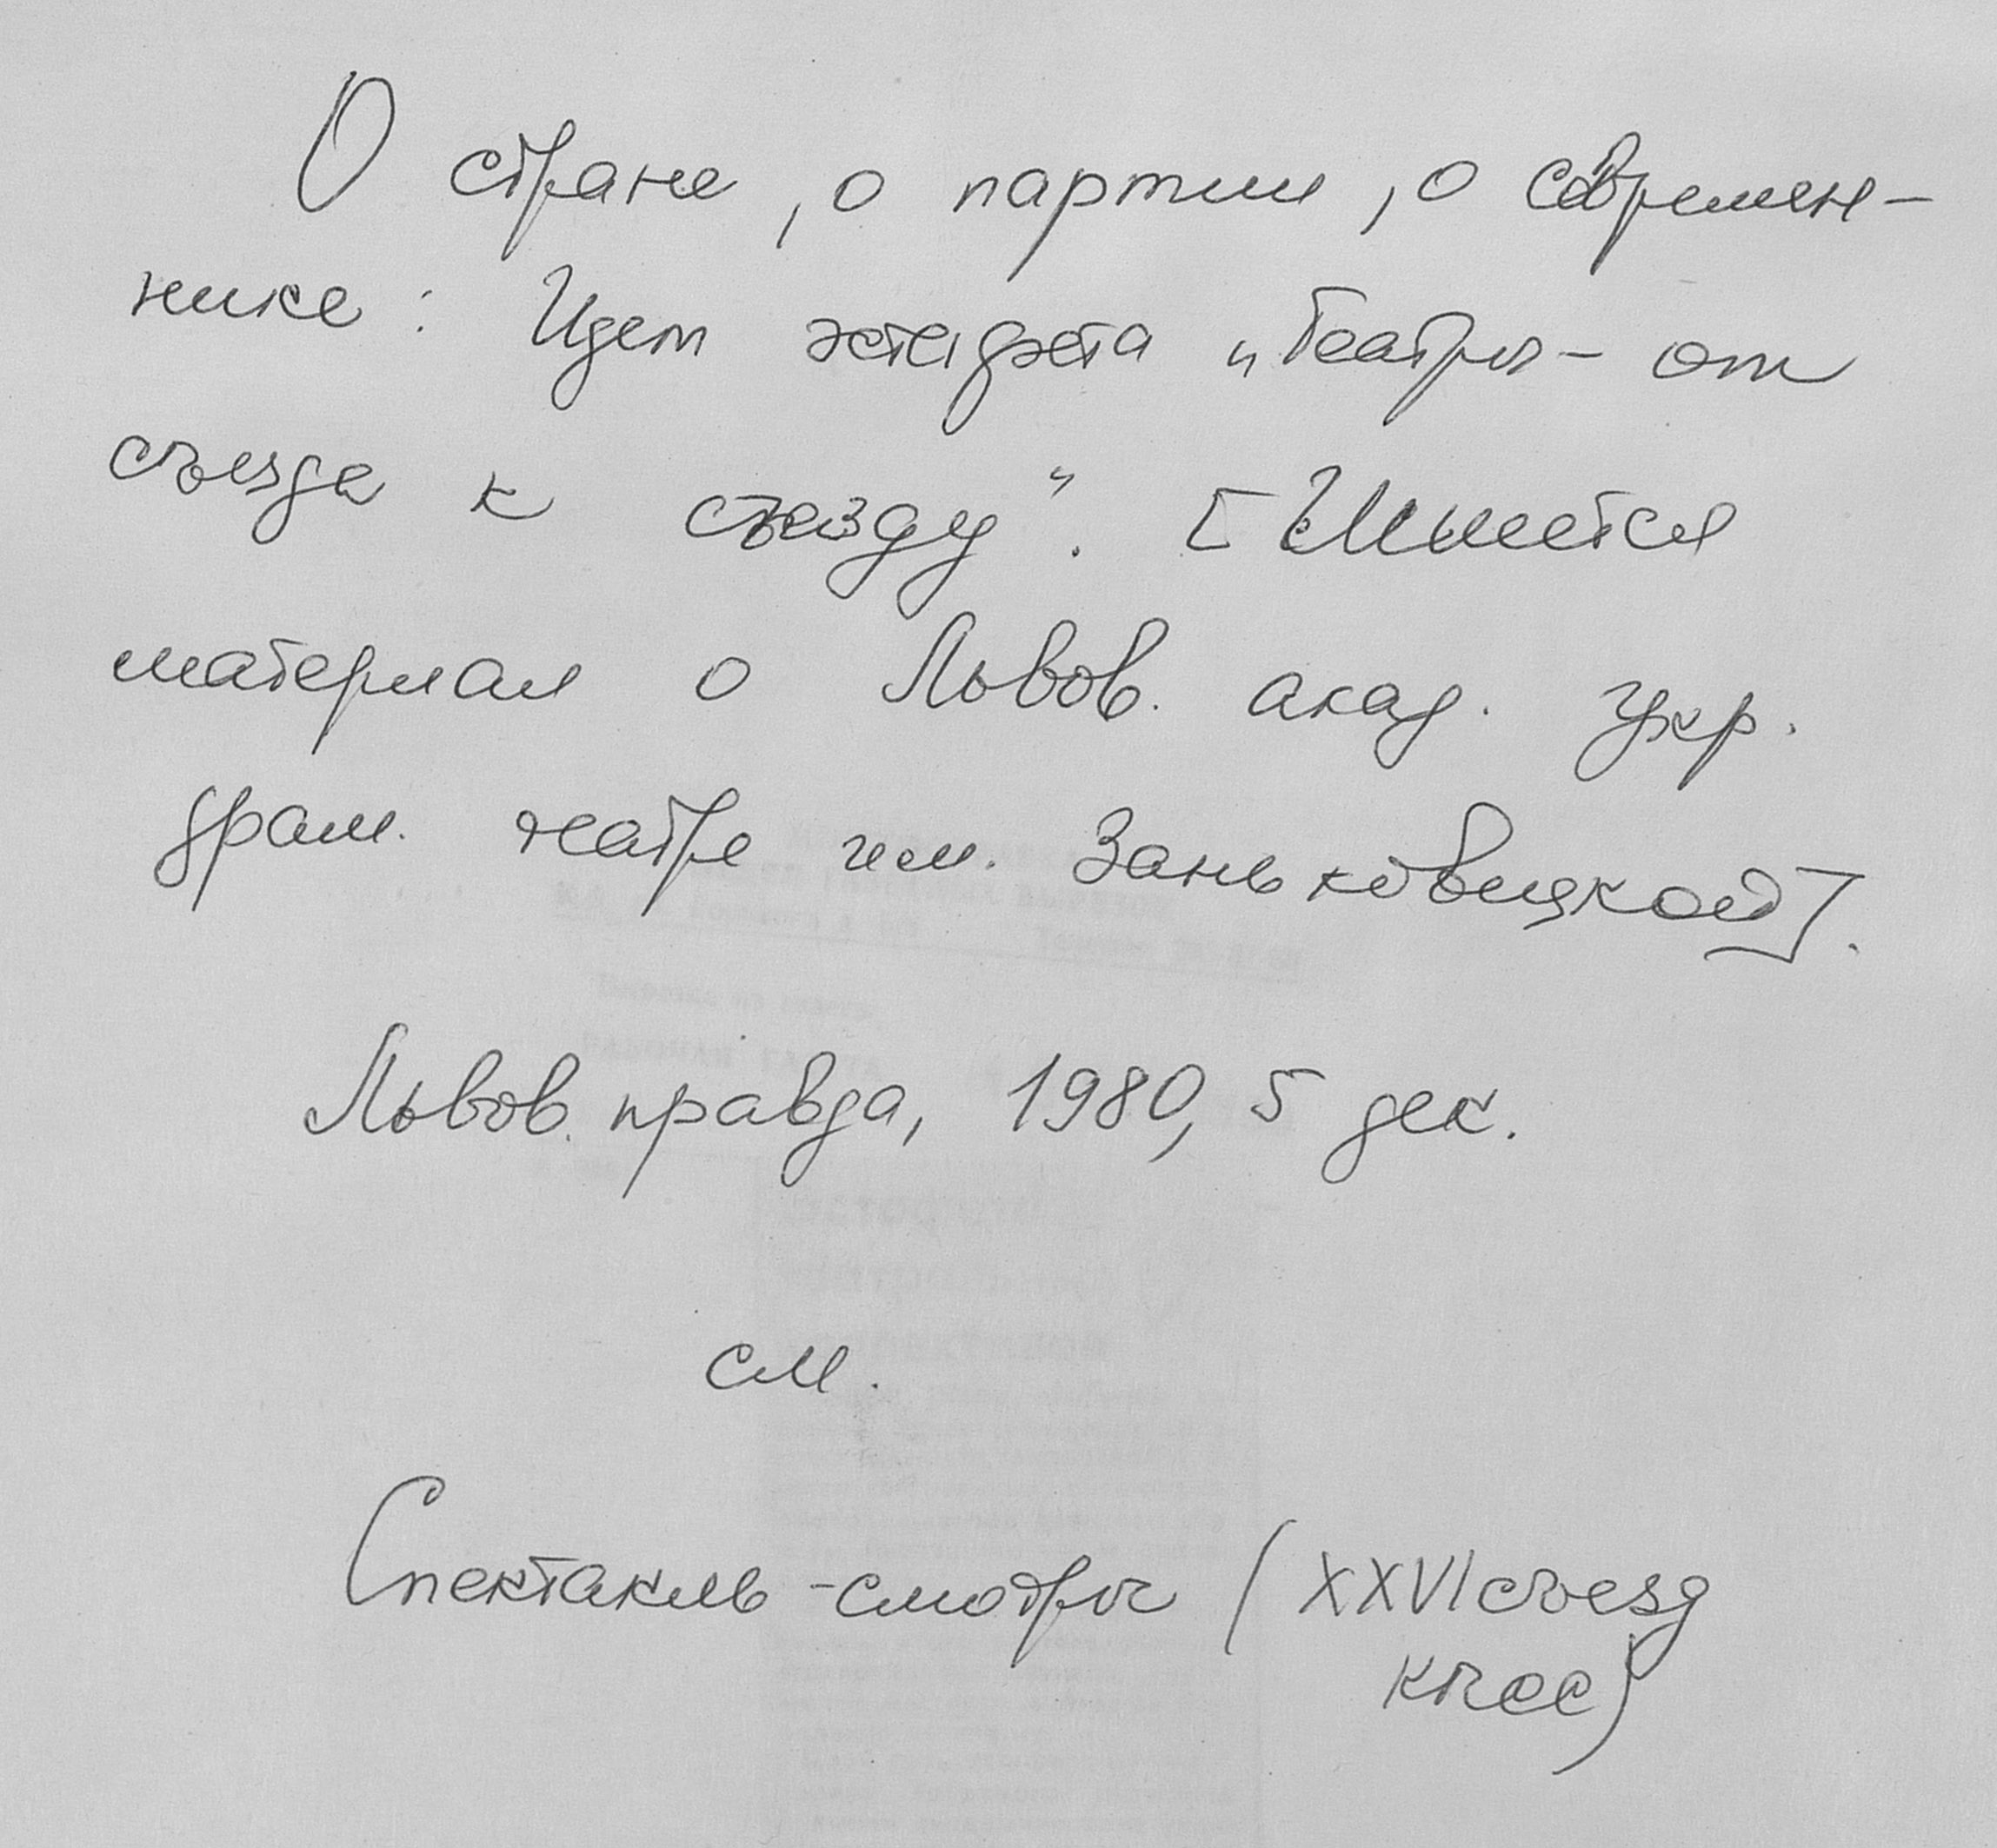 О стране, о партии, о современ-
нике: Идет эстафета „Театры - от
съезда к съезду". [Имеется
материал о Львов. акад. укр.
драм. театре им. Заньковецкой].
Львов. правда, 1980, 5 дек.
см.
Спектакль-смотры (XXVI съезд
КПСС)